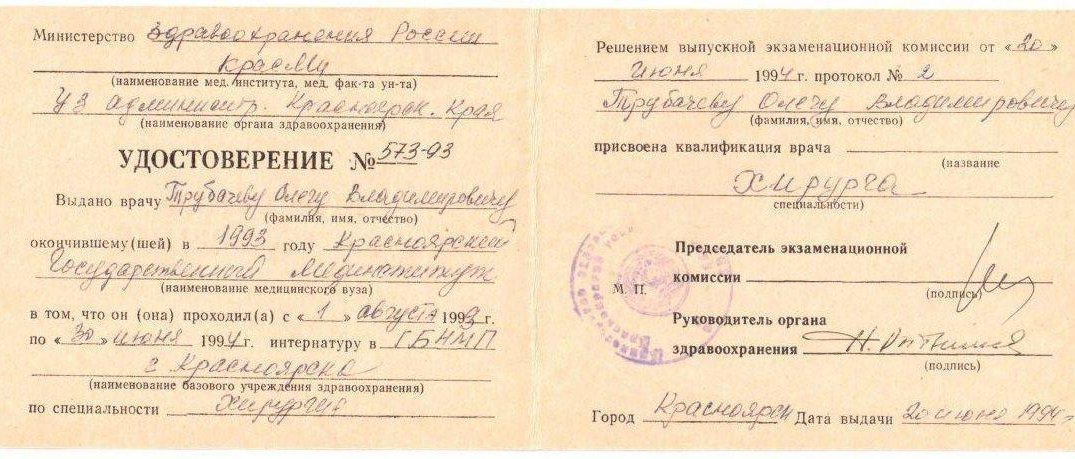 Министерство здравоохранения России
КрасМИ
(наименование мед. института, мед. фак-та ун-та)
УЗ админист. Красноярск. края
(наименование органа здравоохранения)
УДОСТОВЕРЕНИЕ № 573-93
Выдано врачу Трубачеву Олегу Владимировичу
(фамилия, имя, отчество)
окончившему(шей) в 1993 году Красноярский
Государственный Мединститут
(наименование медицинского вуза)
в том, что он (она) проходил(а) с «1» августа 1993 г.
по «30» июня 1994 г. интернатуру в ГБНМП
г Красноярска
(наименование базового учреждения здравоохранения)
по специальности хирургия
Решением выпускной экзаменационной комиссии от «20»
июня 1994 г. протокол № 2
Трубачеву Олегу Владимировичу
(фамилия, имя, отчество)
присвоена квалификация врача
(название
Хирурга
специальности)
Председатель экзаменационной
комиссии
М. П.
(подпись)
Руководитель органа
здравоохранения
(подпись)
Город Красноярск Дата выдачи 20 июня 1994